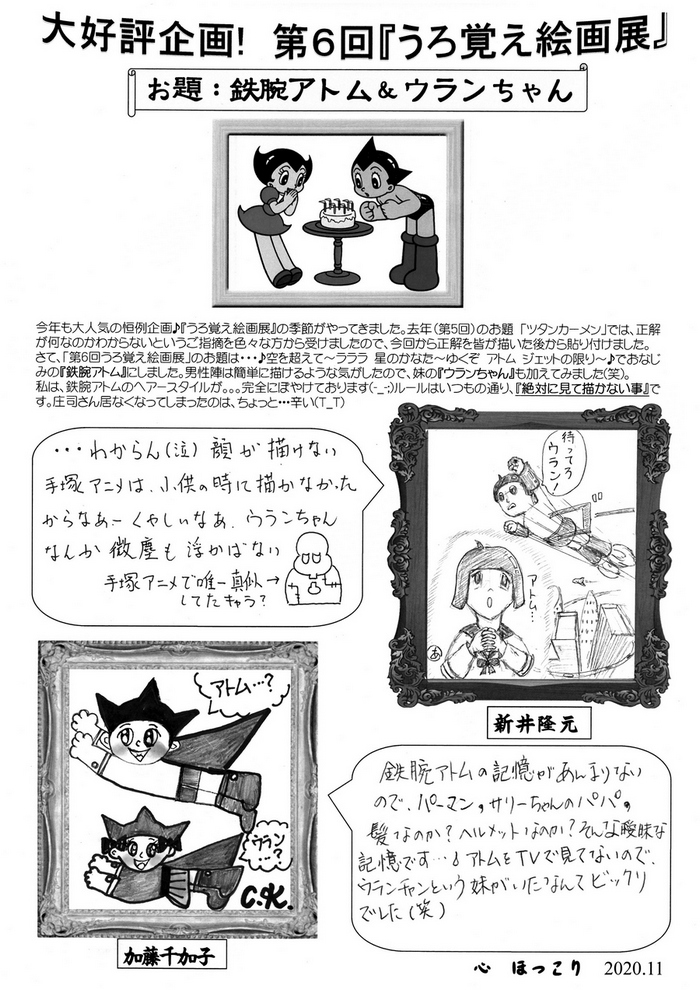 大好評企画! 第6回『うろ覚え絵画展』
お題：鉄腕アトム＆ウランちゃん
今年も大人気の恒例企画♪『うろ覚え絵画展』の季節がやってきました。去年（第5回）のお題「ツタンカーメン」では、正解
が何なのかわからないというご指摘を色々な方から受けましたので、今回から正解を皆が描いた後から貼り付けました。
さて、「第6回うろ覚え絵画展」のお題は・・・♪空を超えて～ラララ 星のかなた～ゆくぞ アトム ジェットの限り～♪でおなじ
みの『鉄腕アトム』にしました。男性陣は簡単に描けるような気がしたので、妹の『ウランちゃん』も加えてみました（笑）。
私は、鉄腕アトムのヘアースタイルが。。。完全にぼやけております(-_-;)ルールはいつもの通り、『絶対に見て描かない事』で
す。庄司さん居なくなってしまったのは、ちょっと・・・辛い(T_T)
・・・わからん（泣） 顔が描けない
手塚アニメは、小供の時に描かなかった
からなあー くやしいなあ、ウランちゃん
なんか 微塵も浮かばない
手塚アニメで唯一真似→
してたキャラ？
待ってろ
ウラン！
アトム…
あ
新井隆元
アトム…？
ウラン
…？
C.K.
加藤千加子
鉄腕アトムの記憶があんまりない
ので、パーマン？サリーちゃんのパパ？
髪なのか？ヘルメットなのか？そんな曖昧な
記憶です…♪アトムをTVで見てないので、
ウランチャンという妹がいたなんてビックリ
でした（笑）
心 ほっこり 2020.11